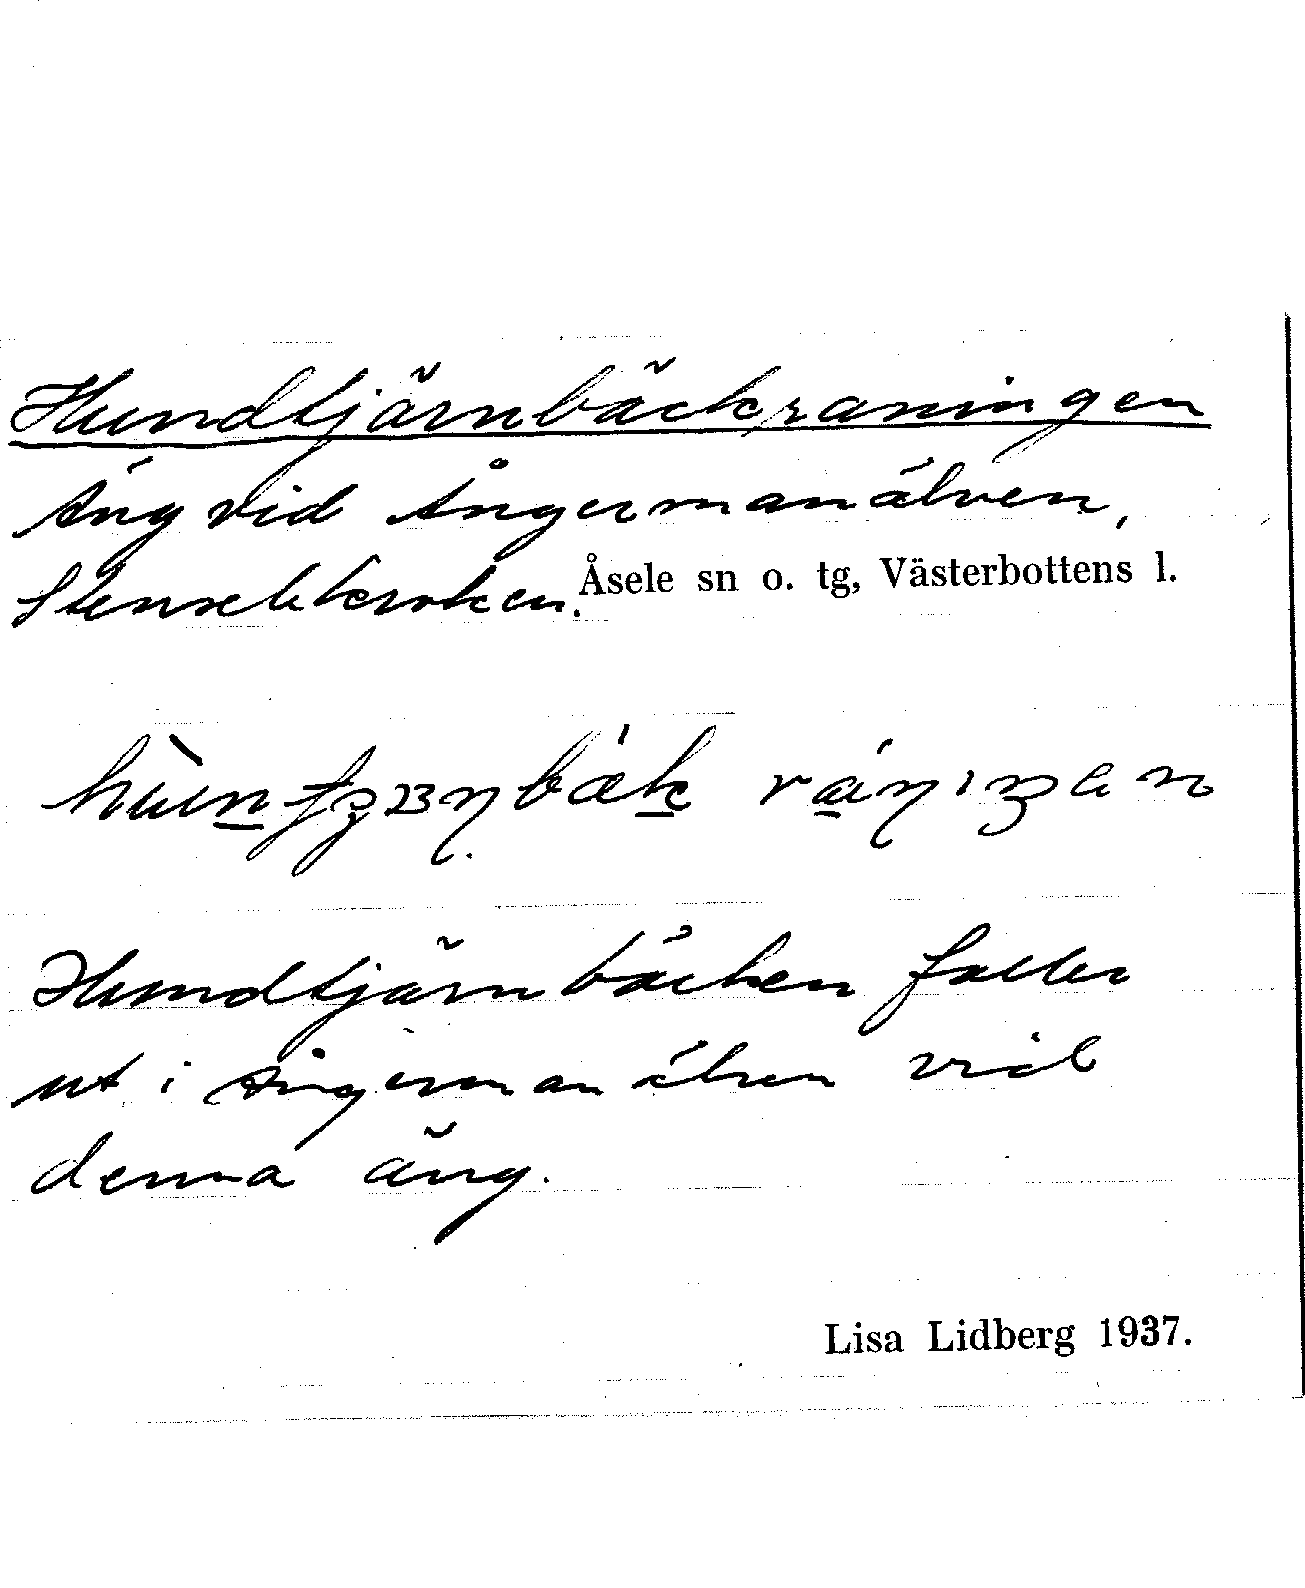 Hundtjärnbäckraningen
Äng vid Ångermanälven,
Stenselekroken. Åsele sn o. tg, Västerbottens l.
Hundtjärnbäcken faller
ut i Ångermanälven vid
denna äng.
Lisa Lidberg 1937.